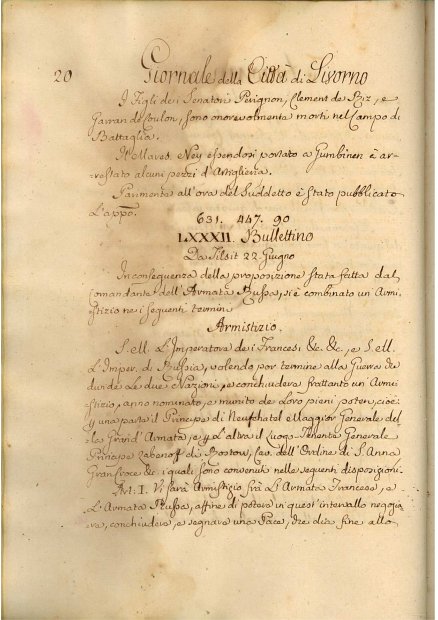 20 Giornale della Città di Livorno
I Figli dei Senatori Perignon, Clement de Riz, e
Garran de Coulon, sono onorevolmente morti nel Campo di
Battaglia.
Il Maresc. Ney essendosi portato a Gumbinen è ar-
restato alcuni pezzi d'Artiglieria.
Parimente all'ora del Suddetto è stato pubblicato
L'appo.
631. 447. 90
LXXXII. Bullettino
Da Tilsit 22. Giugno
Inconseguenza della proposizione stata fatta dal
Comandante dell'Armata Russa, si è combinato un Armi-
stizio nei seguenti termini
Armistizio.
S. ell. L'Imperatore dei Francesi &c. &c., e S. ell.
L'Imper. di Russia, volendo por termine alla Guerra che
divide le due Nazioni, e conchiudere frattanto un Armi-
stizio, anno nominato, e munito de Loro pieni poteri, cioè:
una parte il Principe di Neufchatel e Maggior Generale del
la Grand'Armata, e L'altra il Luogo Tenente Generale
Principe Labanoff di Rostow, Cav. dell'Ordine di S. Anna
Gran Croce &c. i quali sono convenuti nelle seguenti disposizioni.
Art. I. Vi sarà Armistizio frà L'Armata Francese, e
L'Armata Russa, affine di potere in quest'intervallo negozia
re, conchiudere, e segnare una Pace, che dia fine alla